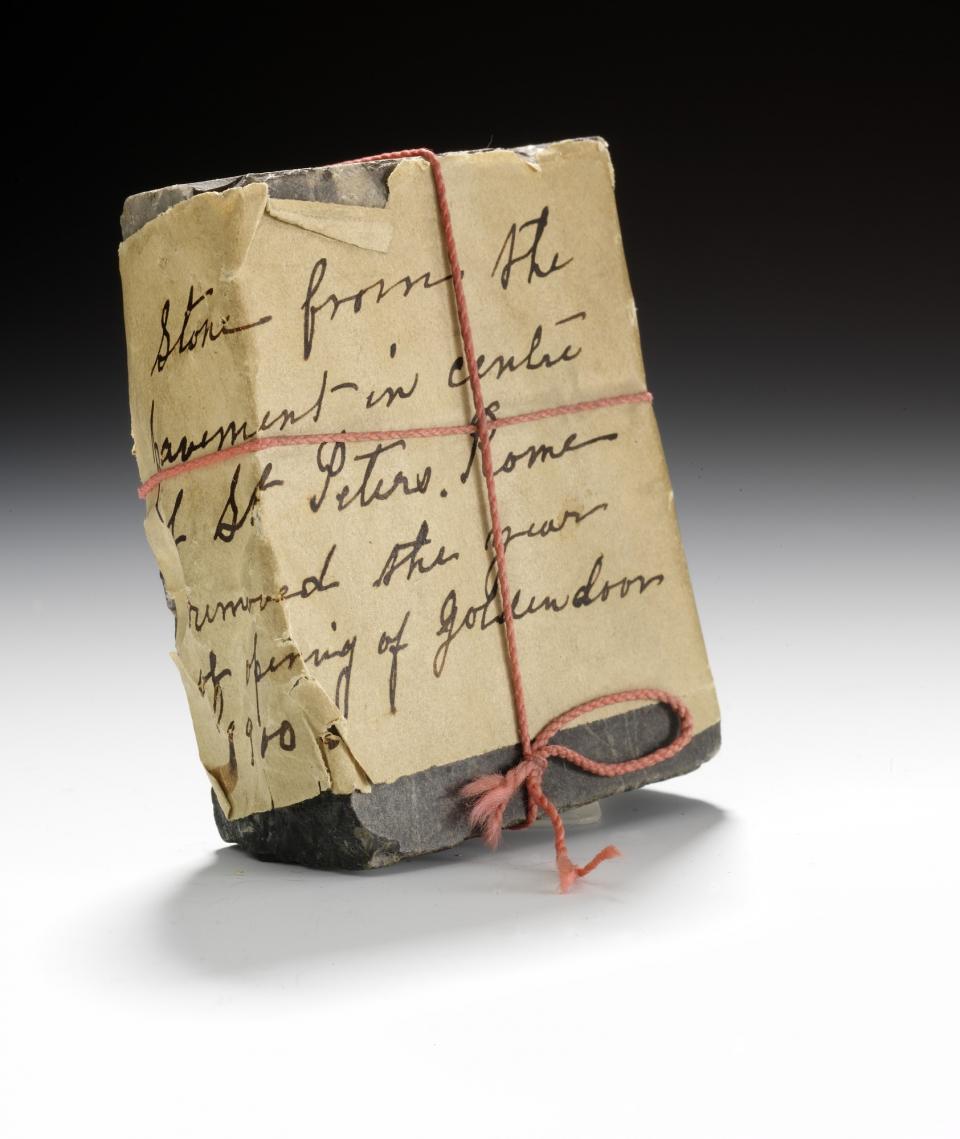 Stone from the
pavement in centre
of St. Peters. Rome
removed the year
of opening of Golden door
1900